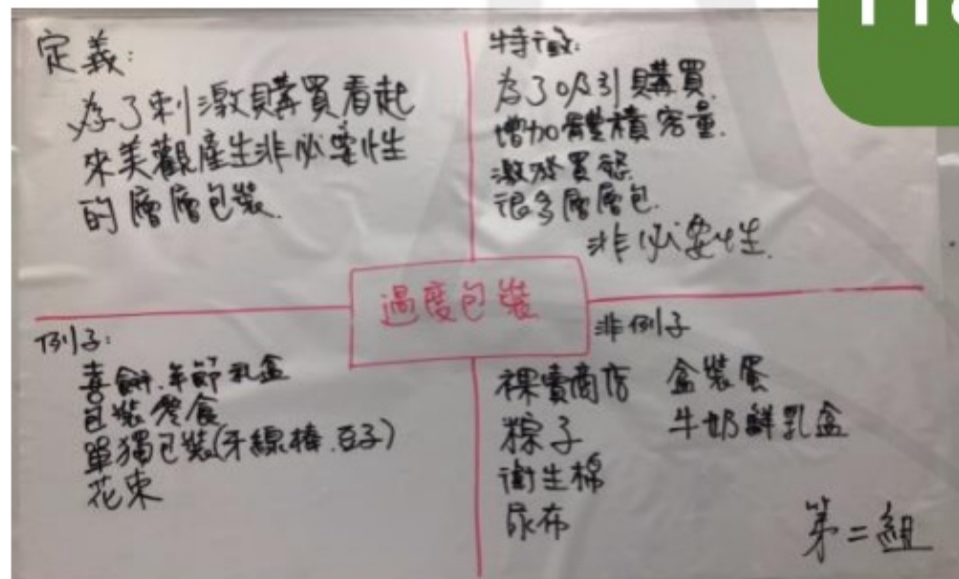 定義:
為了刺激購買看起
來美觀產生非必要性
的層層包裝.
特徵:
為了吸引購買.
增加體積容量.
激發買慾.
很多層層包.
非必要性.
過度包裝
例子:
喜餅.年節禮盒
包裝零食
單獨包裝(牙線棒.豆子)
花束
非例子
裸賣商店
粽子
衛生棉
尿布
盒裝蛋
牛奶鮮乳盒
第二組